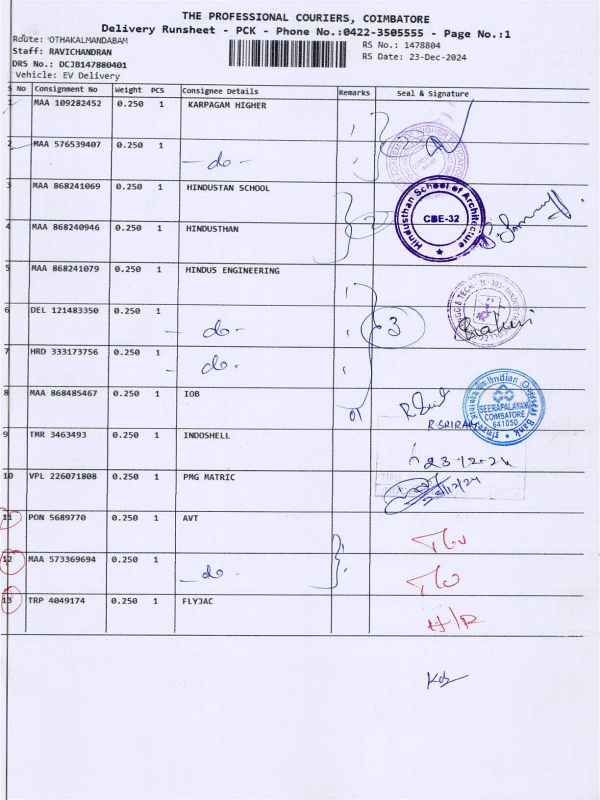 THE PROFESSIONAL COURIERS, COIMBATORE
Delivery Runsheet - PCK - Phone No.:0422-3505555 - Page No.:1
Route: OTHAKALMANDABAM
RS No.: 1478804
Staff: RAVICHANDRAN
RS Date: 23-Dec-2024
DRS No.: DCJB147880401
Vehicle: EV Delivery
S No Consignment No Weight PCS Consignee Details Remarks Seal & Signature
1 MAA 109282452 0.250 1 KARPAGAM HIGHER
2 MAA 576539407 0.250 1 - do - 2
3 MAA 868241069 0.250 1 HINDUSTAN SCHOOL
Hindusthan School of Architecture CBE-32
4 MAA 868240946 0.250 1 HINDUSTHAN 2
5 MAA 868241079 0.250 1 HINDUS ENGINEERING
6 DEL 121483350 0.250 1 - do - 3
7 HRD 333173756 0.250 1 - do -
8 MAA 868485467 0.250 1 IOB 01
Indian Overseas Bank
SEERAPALAYAM
COIMBATORE
641050
R.SRIRAM
9 TMR 3463493 0.250 1 INDOSHELL
23-12-24
10 VPL 226071808 0.250 1 PMG MATRIC
23/12/24
11 PON 5689770 0.250 1 AVT
12 MAA 573369694 0.250 1 - do -
13 TRP 4049174 0.250 1 FLYJAC
H/R